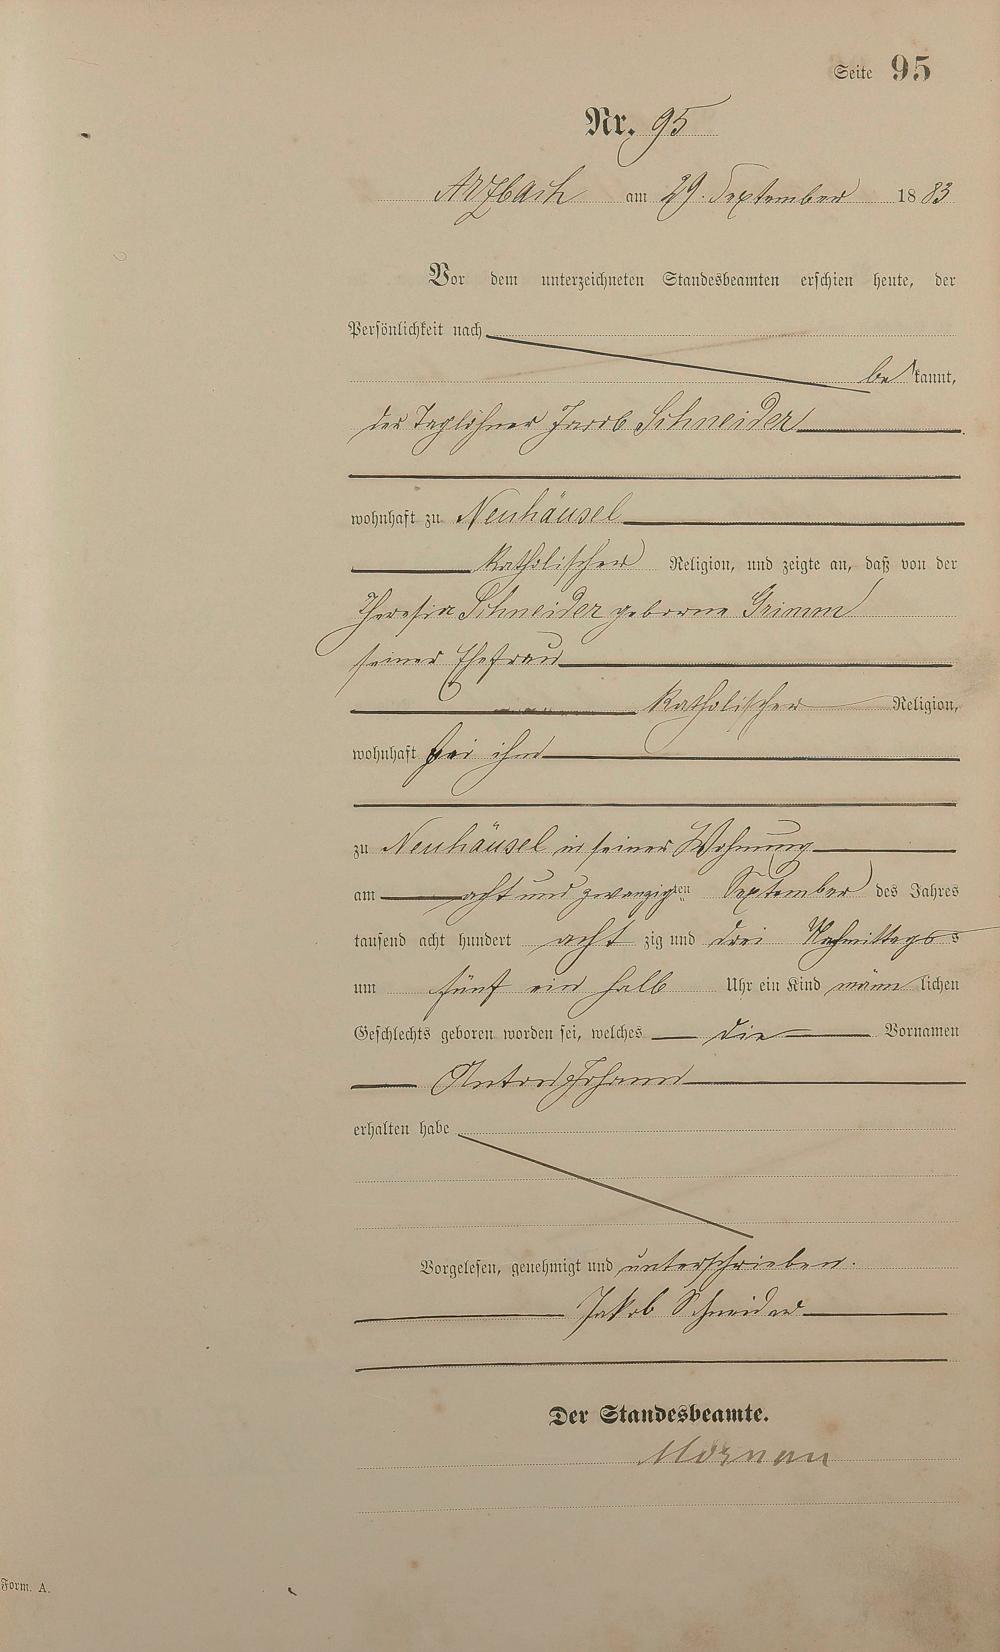 Seite 95
Nr. 95
Arzbach am 29. September 1883
Vor dem unterzeichneten Standesbeamten erschien heute, der
Persönlichkeit nach
be kannt,
der Taglöhner Jacob Schneider
wohnhaft zu Neuhäusel
katholischer Religion, und zeigte an, daß von der
Theresia Schneider geborne Grimm
seiner Ehefrau
katholischer Religion,
wohnhaft bei ihm
zu Neuhäusel in seiner Wohnung
am acht und zwanzigsten September des Jahres
tausend acht hundert acht zig und drei Nachmittags
um fünf ein halb Uhr ein Kind männ lichen
Geschlechts geboren worden sei, welches die Vornamen
Anton Johann
erhalten habe
Vorgelesen, genehmigt und unterschrieben.
Jakob Schneider
Der Standesbeamte.
Form. A.